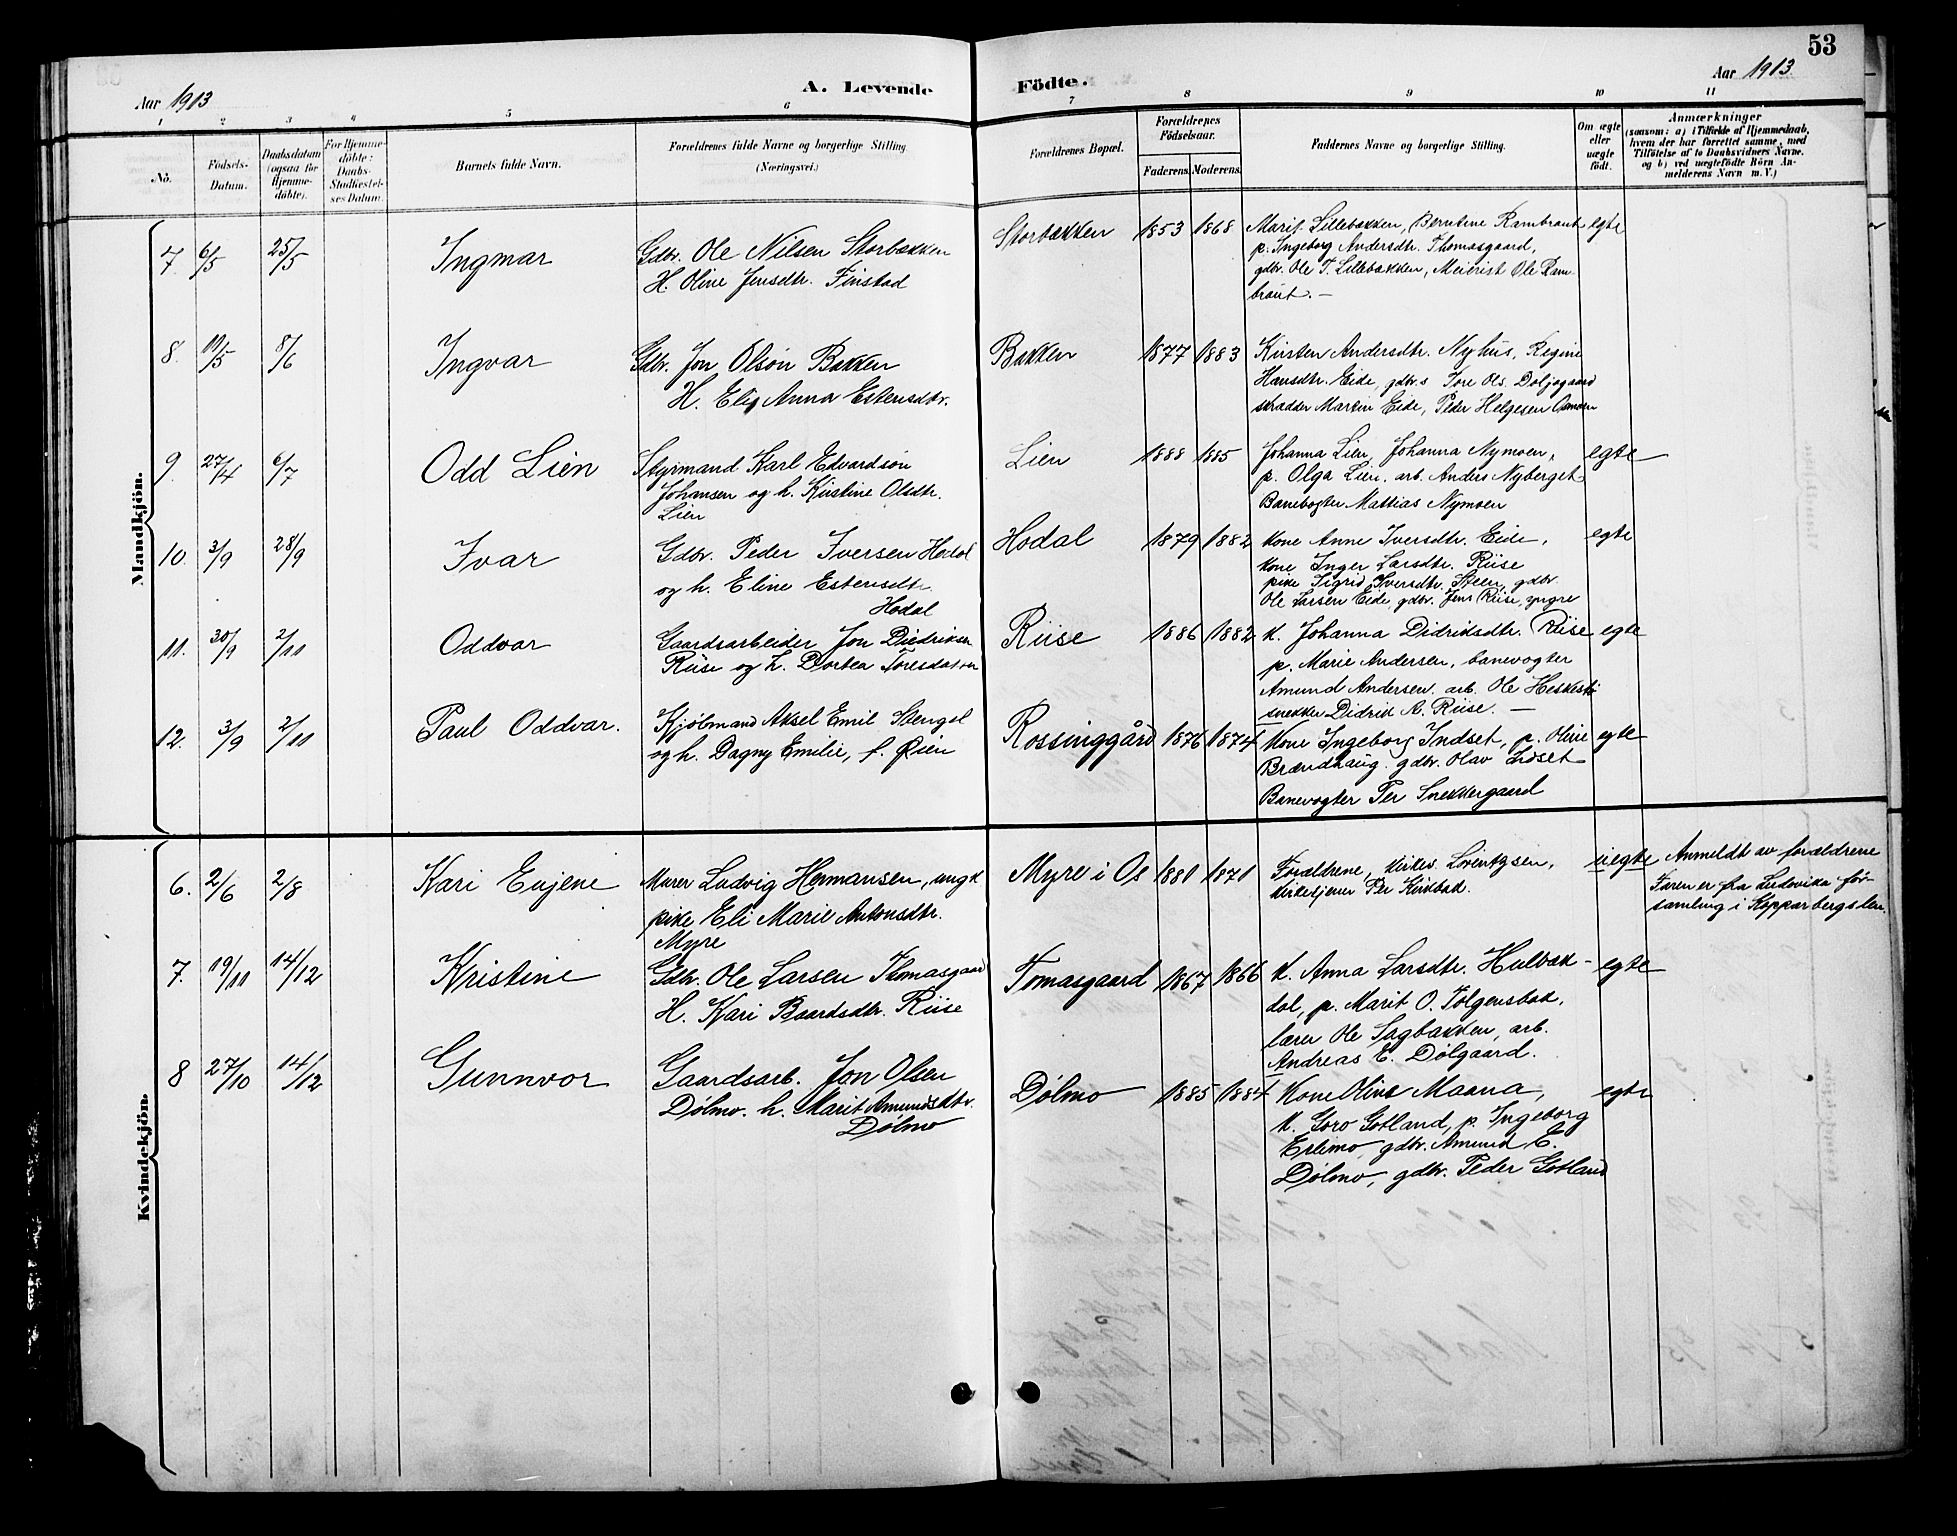 53
Aar 1913
A. Levende Födte.
Aar 1913
1 2 3 4 5 6 7 8 9 10 11
No.
Födsels-
Datum.
Daabsdatum
(ogsaa for
Hjemme-
döbte).
For Hjemme-
döbte:
Daabs-
Stadfæstel-
ses Datum.
Barnets fulde Navn.
Forældrenes fulde Navne og borgerlige Stilling
(Næringsvei.)
Forældrenes Bopæl.
Forældrenes
Födselsaar.
Faderens. Moderens.
Faddernes Navne og borgerlige Stilling.
Om ægte
eller
uægte
födt.
Anmærkninger
(saasom: a) i Tilfælde af Hjemmedaab,
hvem der har forrettet samme, med
Tilföielse af to Daabsvidners Navne.
og b) ved uægtefödte Börn An-
melderens Navn m. V.)
Mandkjön.
7. 6/5 25/5
Ingmar
Gdbr. Ole Nilsen Storbækken
H. Oline Jensdtr. Finstad
Storbækken 1853 1868
Marit Lillebækken, Berntine Rambraut
p. Ingeborg Andersdtr. Thomasgaard,
gdbr. Ole T. Lillebækken, Meierist Ole Ram-
braut. —
egte
8. 19/5 8/6
Ingvar
Gdbr. Jon Olson Bakken
H. Eli Anna Estensdtr.
Bakken 1877 1883
Kirsten Andersdtr. Nyhus, Regine
Hansdtr. Eide, gdbr.s Tore Ols. Doljogaard
skrædder Martin Eide, Peder Helgesen Osmoen
9. 27/4 6/7
Odd Lien
Styrmand Karl Edvardson
Johansen og h. Kirstine Olsdtr.
Lien
Lien 1888 1885
Johanna Lien, Johanna Nymoen,
p. Olga Lien. arb. Anders Nyberget
Banevogter Mattias Nymoen
egte
10. 3/9 28/9
Ivar
Gdbr. Peder Iversen Hodal
og h. Eline Estensdtr.
Hodal
Hodal 1879 1882
Kone Anne Iversdtr. Eide,
kone Inger Larsdtr. Riise
pike Sigrid Iversdtr. Steen, gdbr.
Ole Larsen Eide, gdbr. Jens Riise, yngre
egte
11. 30/9 2/11
Oddvar
Gaardsarbeider Jon Diedriksen
Riise og h. Dortea Toresdatter
Riise 1886 1882
k. Johanna Didriksdtr. Riise
p. Marie Andersen, banevogter
Amund Andersen. arb. Ole Heskesti
snekker Didrik A. Riise. —
egte
12. 3/9 2/11
Paul Oddvar.
Kjöbmand Aksel Emil Stengel
og h. Dagny Emilie, f. Øien
Rossinggård 1876 1874
Kone Ingeborg Indset, p. Oline
Brændhaug. gdbr. Olav Indset
Banevogter Per Snekkergaard
egte
Kvindekjön.
6. 2/6 2/8
Kari Eujene
Murer Ludvig Hermansen, ungk
pike Eli Marie Antonsdtr.
Myre
Myre i Os 1881 1871
Forældrene, kirkev. Lorentzsen,
kirketjener Per Kirkbak.
uegte
Anmeldt av forældrene
Faren er fra Ludovika för-
samling i Kopparbergslen.
7. 19/11 14/12
Kristine
Gdbr. Ole Larsen Thomasgaard
H. Kari Baardsdtr. Riise
Tomasgaard 1867 1866
k. Anna Larsdtr. Hulbæk-
dal, p. Marit O. Tolgensbak,
lærer Ole Sagbakken, arb.
Andreas E. Dølgaard.
egte
8 27/10 14/12
Gunnvor
Gaardsarb. Jon Olsen
Dølmo. h. Marit Amundsdtr.
Dølmo
Dølmo 1885 1884
Kone Oline Maana,
k. Goro Gotland, p. Ingeborg
Erlimo, gdbr. Amund E.
Dølmo, gdbr. Peder Gotland
egte